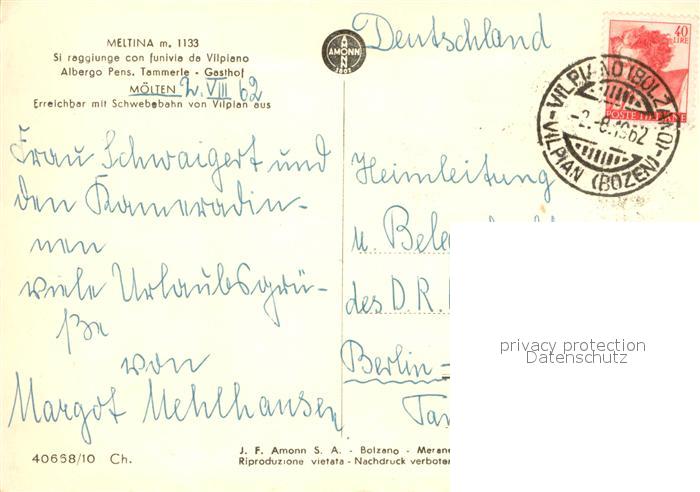 MELTINA m. 1133
Si raggiunge con funivia da Vilpiano
Albergo Pens. Tammerle - Gasthof
MÖLTEN 2. VIII 62
Erreichbar mit Schwebebahn von Vilpian aus
Frau Schwaigert und
den Kameradin-
nen
viele Urlaubsgrü-
ße
von
Margot Mehlhausen
40658/10 Ch.
AMONN
Deutschland
40
LIRE
POSTE ITALIANE
VILPIANO (BOLZANO)
-2-8.1962
VILPIAN (BOZEN)
Heimleitung
u. Bele
des D.R.
Berlin-
Ta
privacy protection
Datenschutz
J. F. Amonn S. A. - Bolzano - Merane
Riproduzione vietata - Nachdruck verboten